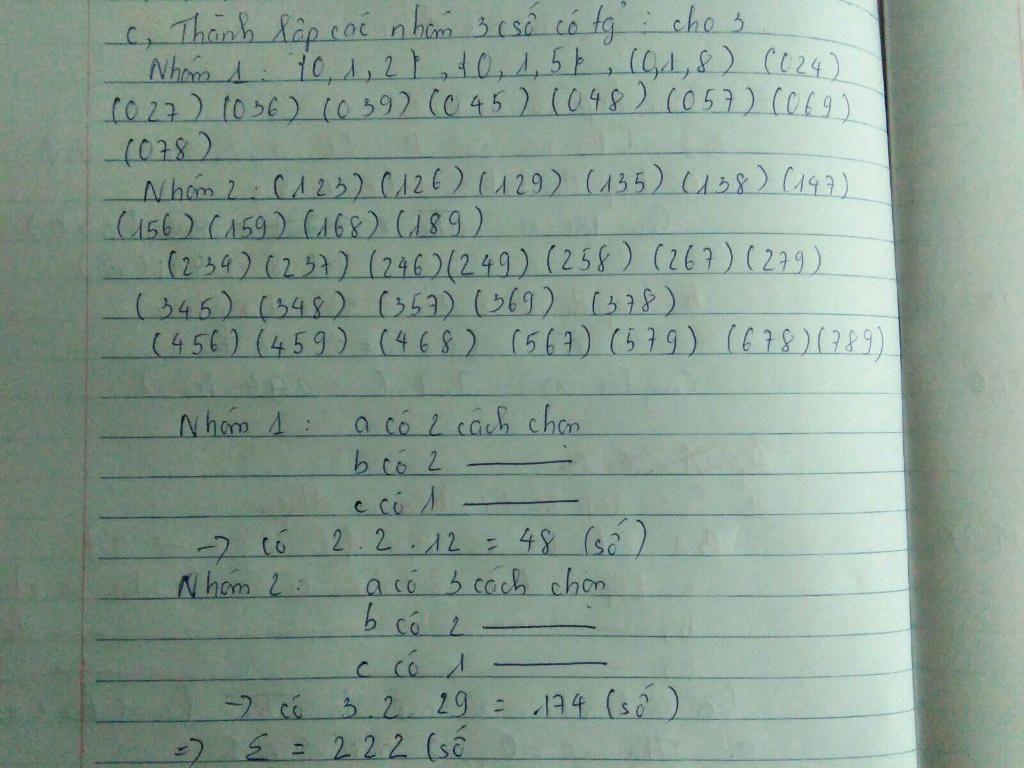 c, Thành lập các nhóm 3 csố có tg̉ ⋮ cho 3
Nhóm 1 : {0, 1, 2}, {0, 1, 5}, (0,1,8) (024)
(027) (036) (039) (045) (048) (057) (069)
(078)
Nhóm 2 : (123) (126) (129) (135) (138) (147)
(156) (159) (168) (189)
(234) (237) (246) (249) (258) (267) (279)
(345) (348) (357) (369) (378)
(456) (459) (468) (567) (579) (678) (789)
Nhóm 1 : a có 2 cách chọn
b có 2 ———
c có 1 ———
→ có 2.2.12 = 48 (số)
Nhóm 2 : a có 3 cách chọn
b có 2 ———
c có 1 ———
→ có 3.2.29 = 174 (số)
=> Σ = 222 (số